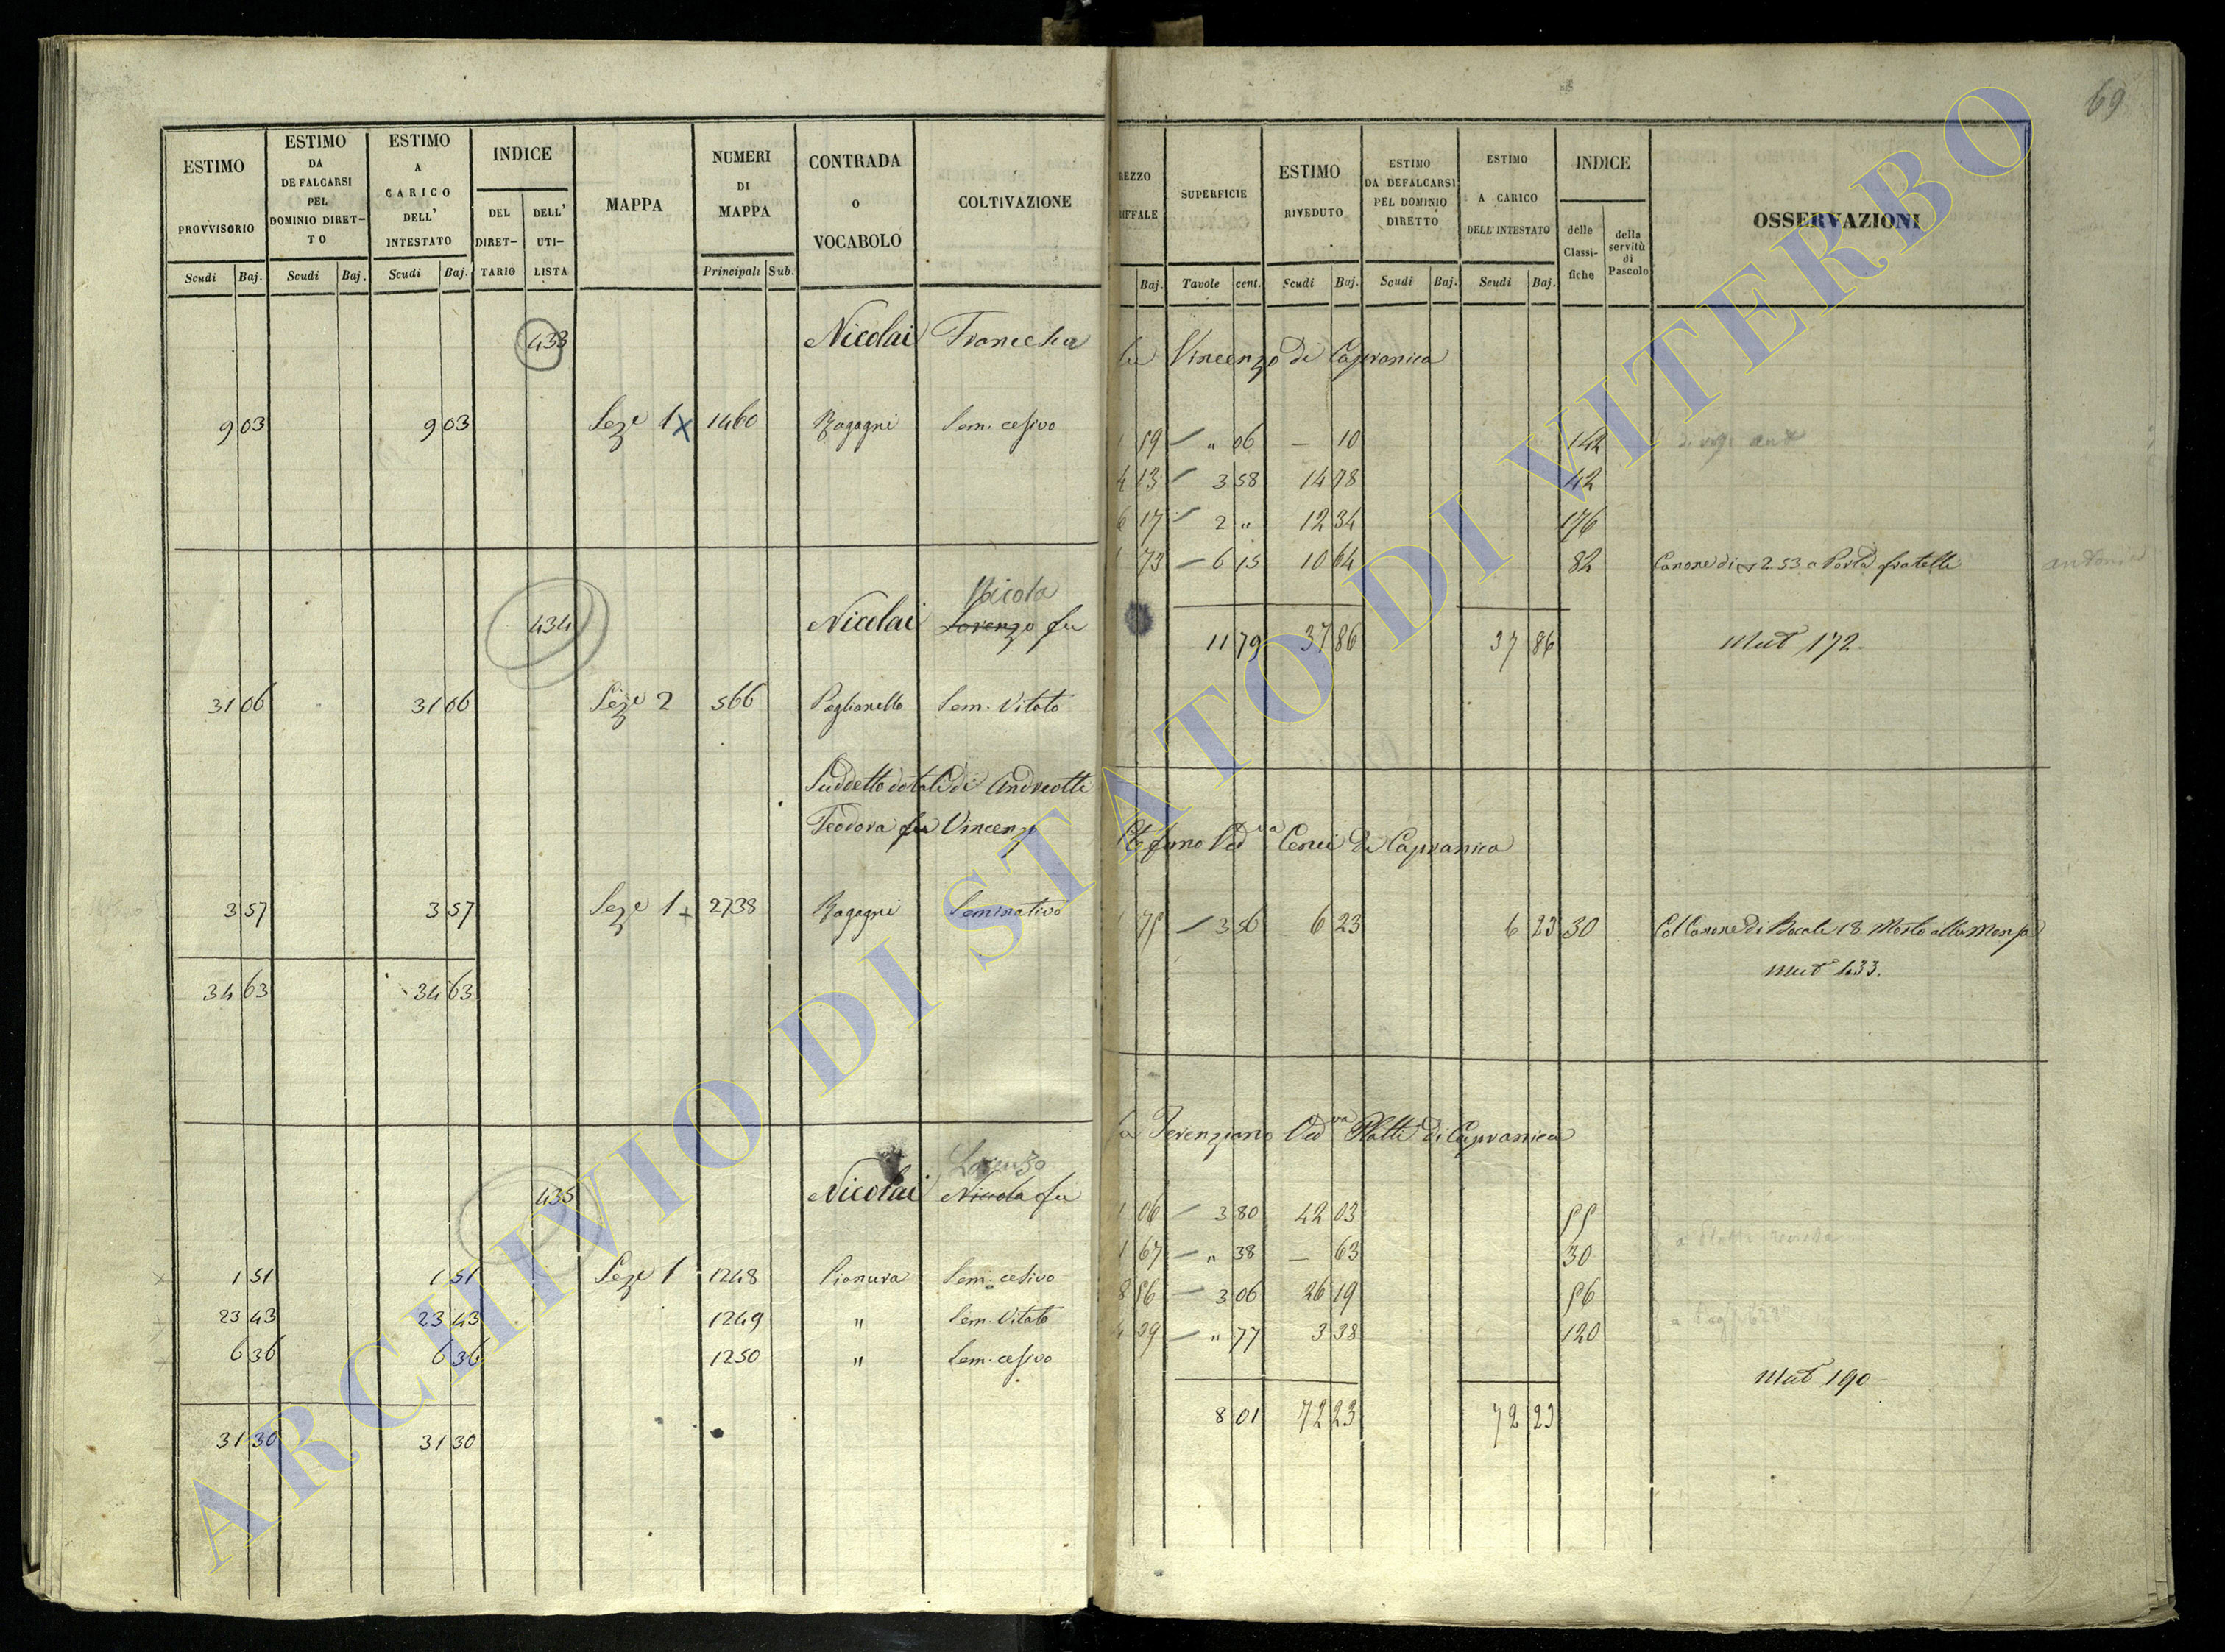 ESTIMO PROVVISORIO
ESTIMO DA DEFALCARSI PEL DOMINIO DIRET-TO
ESTIMO A CARICO DELL' INTESTATO
INDICE
DEL DIRET-TARIO
DELL' UTI-LISTA
MAPPA
NUMERI DI MAPPA
CONTRADA O VOCABOLO
COLTIVAZIONE
Scudi Baj. Scudi Baj. Scudi Baj. Principali Sub.
433 Nicolai Francesca
9 03 9 03 Seze 1 x 1460 Ragagni Sem. cesivo
Nicola
434 Nicolai Lorenzo fu
31 06 31 06 Seze 2 566 Paglianello Sem. Vitato
Suddetto dotali di Andreotti
Teodora fu Vincenzo
3 57 3 57 Seze 1 + 2738 Ragagni Seminativo
34 63 34 63
Lorenzo
435 Nicolai Nicola fu
1 51 1 51 Seze 1 1248 Pianura Sem. cesivo
23 43 23 43 1249 " Sem. Vitato
6 36 6 36 1250 " Sem. cesivo
31 30 31 30
69
REZZO IFFALE
SUPERFICIE
ESTIMO RIVEDUTO
ESTIMO DA DEFALCARSI PEL DOMINIO DIRETTO
ESTIMO A CARICO DELL' INTESTATO
INDICE
delle Classi-fiche
della servitù di Pascolo
OSSERVAZIONI
Baj. Tavole cent. Scudi Baj. Scudi Baj. Scudi Baj.
fu Vincenzo di Capranica
1 59 " 06 — 10 142
4 13 3 58 14 78 42
6 17 2 " 12 34 176
1 73 6 15 10 64 82 Canone di 2.53 a Porta fratelli
11 79 37 86 37 86 Mut 172
Stefano Ved va Cenci di Capranica
1 75 3 56 6 23 6 23 30 Col Canone di Bocali 18 Mosto alla Mensa
Mut 133.
fu Terenziano Ved va Platti di Capranica
1 06 3 80 42 03 55
1 67 " 38 — 63 30
8 56 3 06 26 19 56
4 39 " 77 3 38 120
Mut 190
8 01 72 23 72 23
ARCHIVIO DI STATO DI VITERBO